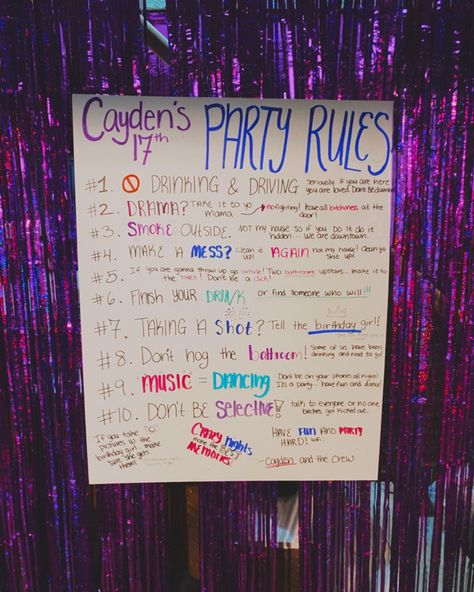 Cayden's 17th PARTY RULES
#1. DRINKING & DRIVING Seriously. If you are here
you are loved. Dont Be dumb
#2. DRAMA? Take it to yo mama. no fighting! leave all bitchiness at the door!
#3. SMOKE OUTSIDE. Not my house so if you do it do it
hidden... we are downtown.
#4. MAKE A MESS? Clean it up! AGAIN not my house! clean yo shit up!
#5. If you are gonna throw up go outside! Two bathrooms upstairs... make it to
the toilet! Don't be a dick!
#6. Finish your DRINK or find someone who will!!!
#7. TAKING A Shot? Tell the birthday girl!
#8. Don't hog the bathroom! Some of us have been
drinking and need to go!
#9. MUSIC = DANCING Dont be on your phones all night!
Its a party... have fun and dance!
#10. DON'T BE SELECTIVE! talk to everyone or no one
bitches get kicked out.
If you take
pictures w the
birthday girl make
sure she gets
them!
CRAZY Nights
make the BEST
MEMORIES
HAVE FUN AND PARTY
HARD!
-Cayden and the crew